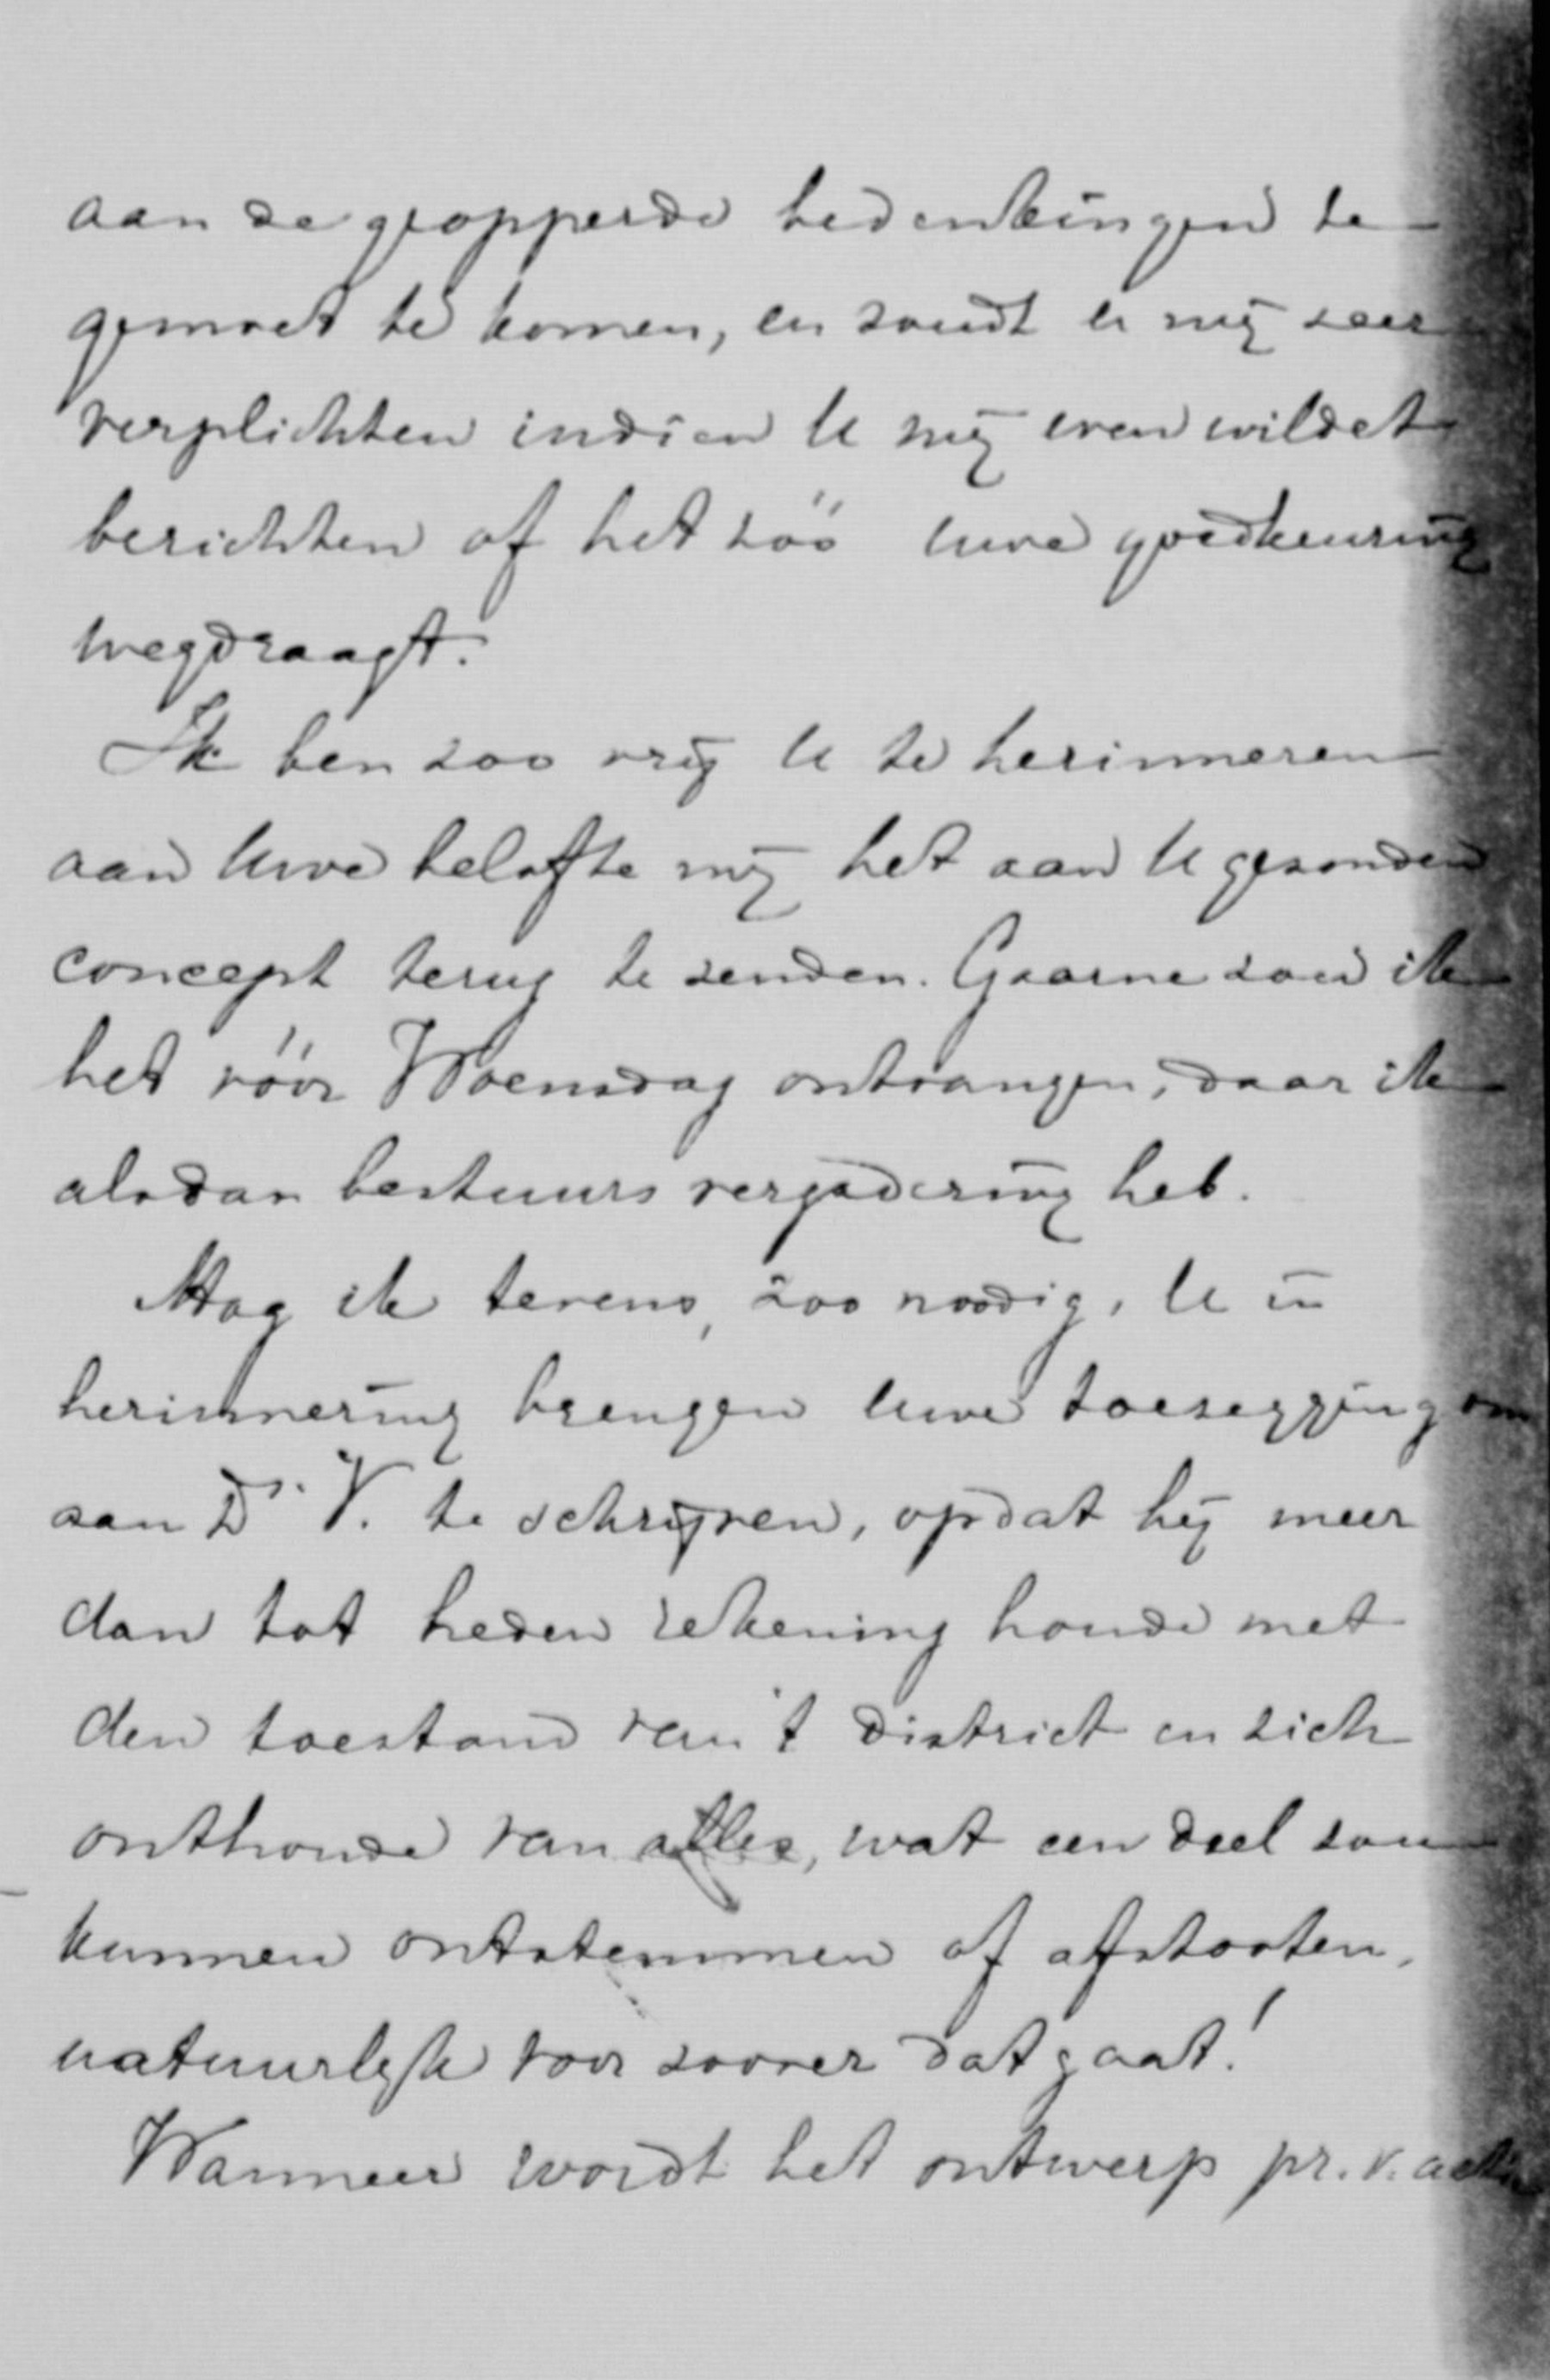 aan de geopperde bedenkingen te
gemoet te komen, en zoudt U mij zeer
verplichten indien U mij even wildet
berichten of het zóó Uwe goedkeuring
wegdraagt.
Ik ben zoo vrij U te herinneren
aan Uwe belofte mij het aan U gezonden
concept terug te zenden. Gaarne zou ik
het vóór Woensdag ontvangen, daar ik
alsdan bestuurs vergadering heb.
Mag ik tevens, zoo noodig, U in
herinnering brengen Uwe toezegging om
aan Dr. V. te schrijven, opdat hij meer
dan tot heden rekening houde met
den toestand van 't district en zich
onthoude van alles, wat een deel zou
kunnen ontstemmen of afstooten,
natuurlijk voor zoover dat gaat!
Wanneer wordt het ontwerp pr. v. actie